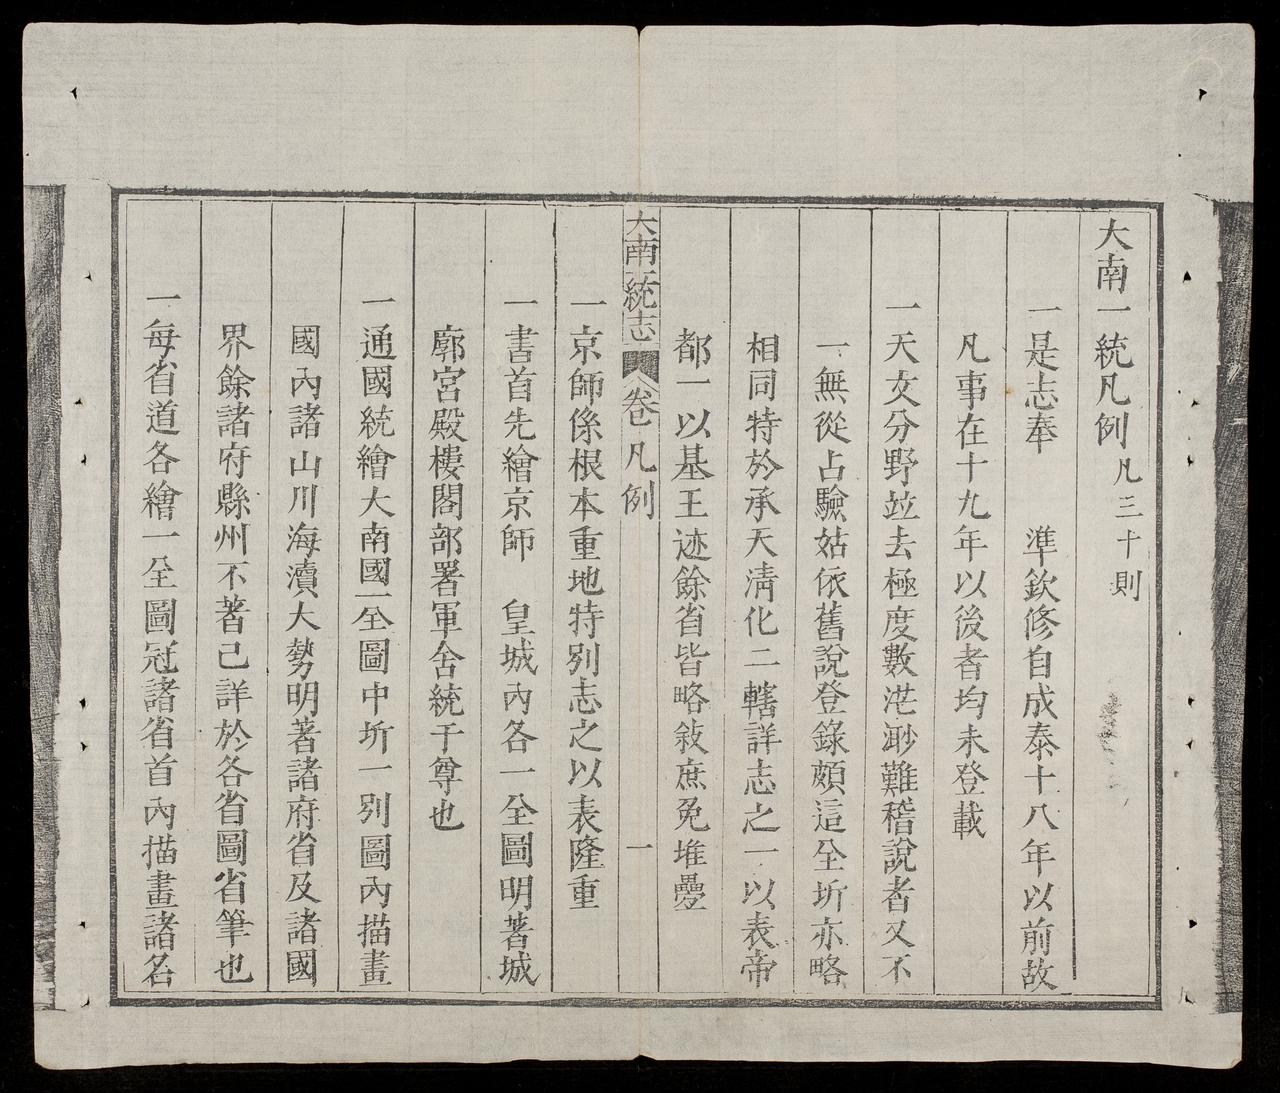 大南一統凡例 凡三十則
一是志奉 準欽修自成泰十八年以前故
凡事在十九年以後者均未登載
一天文分野竝去極度數茫渺難稽說者又不
一無從占驗姑依舊說登錄頗這全圻亦略
相同特於承天清化二轄詳志之一以表帝
都一以基王迹餘省皆略敍庶免堆疊
一京師係根本重地特別志之以表隆重
大南一統志 卷 凡例 一
一書首先繪京師 皇城內各一全圖明著城
廓宮殿樓閣部署軍舍統于尊也
一通國統繪大南國一全圖中圻一別圖內描畫
國內諸山川海瀆大勢明著諸府省及諸國
界餘諸府縣州不著已詳於各省圖省筆也
一每省道各繪一全圖冠諸省首內描畫諸名